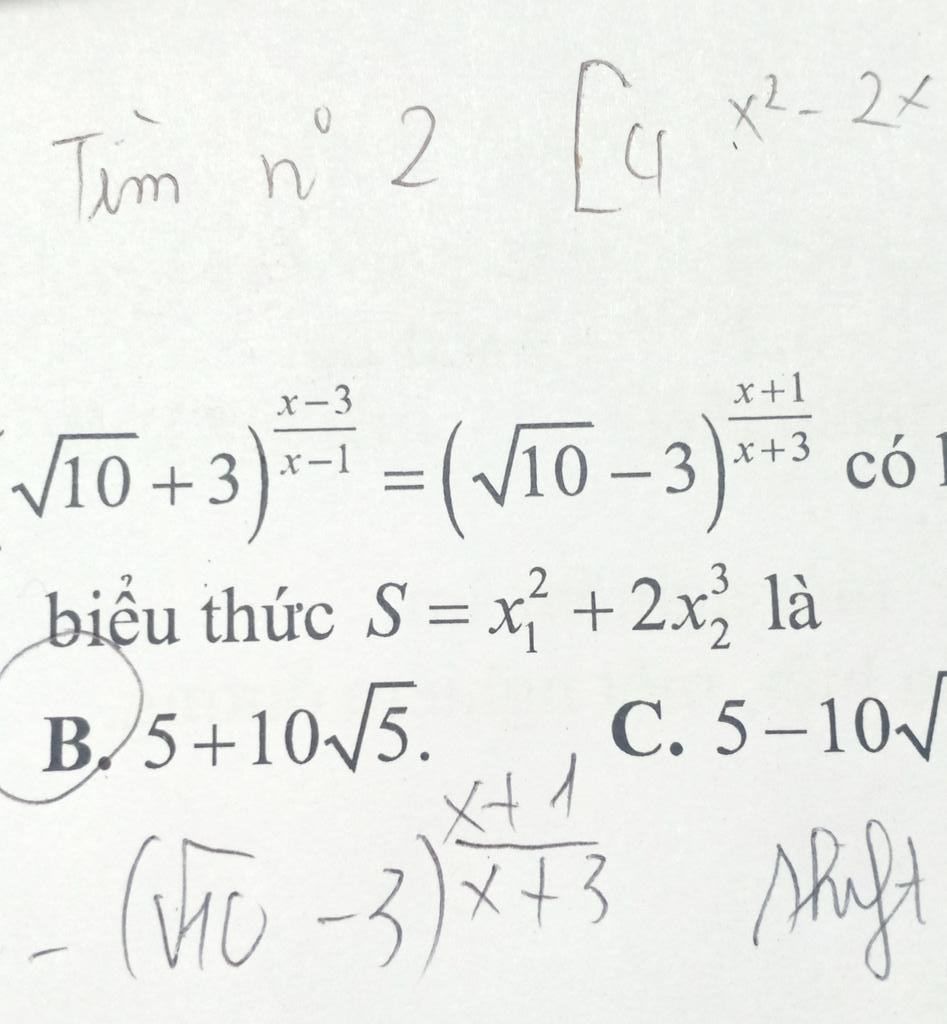 Tìm n° 2 [4^{x² - 2x}
√10 + 3)^{\frac{x-3}{x-1}} = (√10 - 3)^{\frac{x+1}{x+3}} có
biểu thức S = x_1^2 + 2x_2^3 là
B. 5+10√5. C. 5-10√
- (√10 - 3)^{\frac{x+1}{x+3}} shift